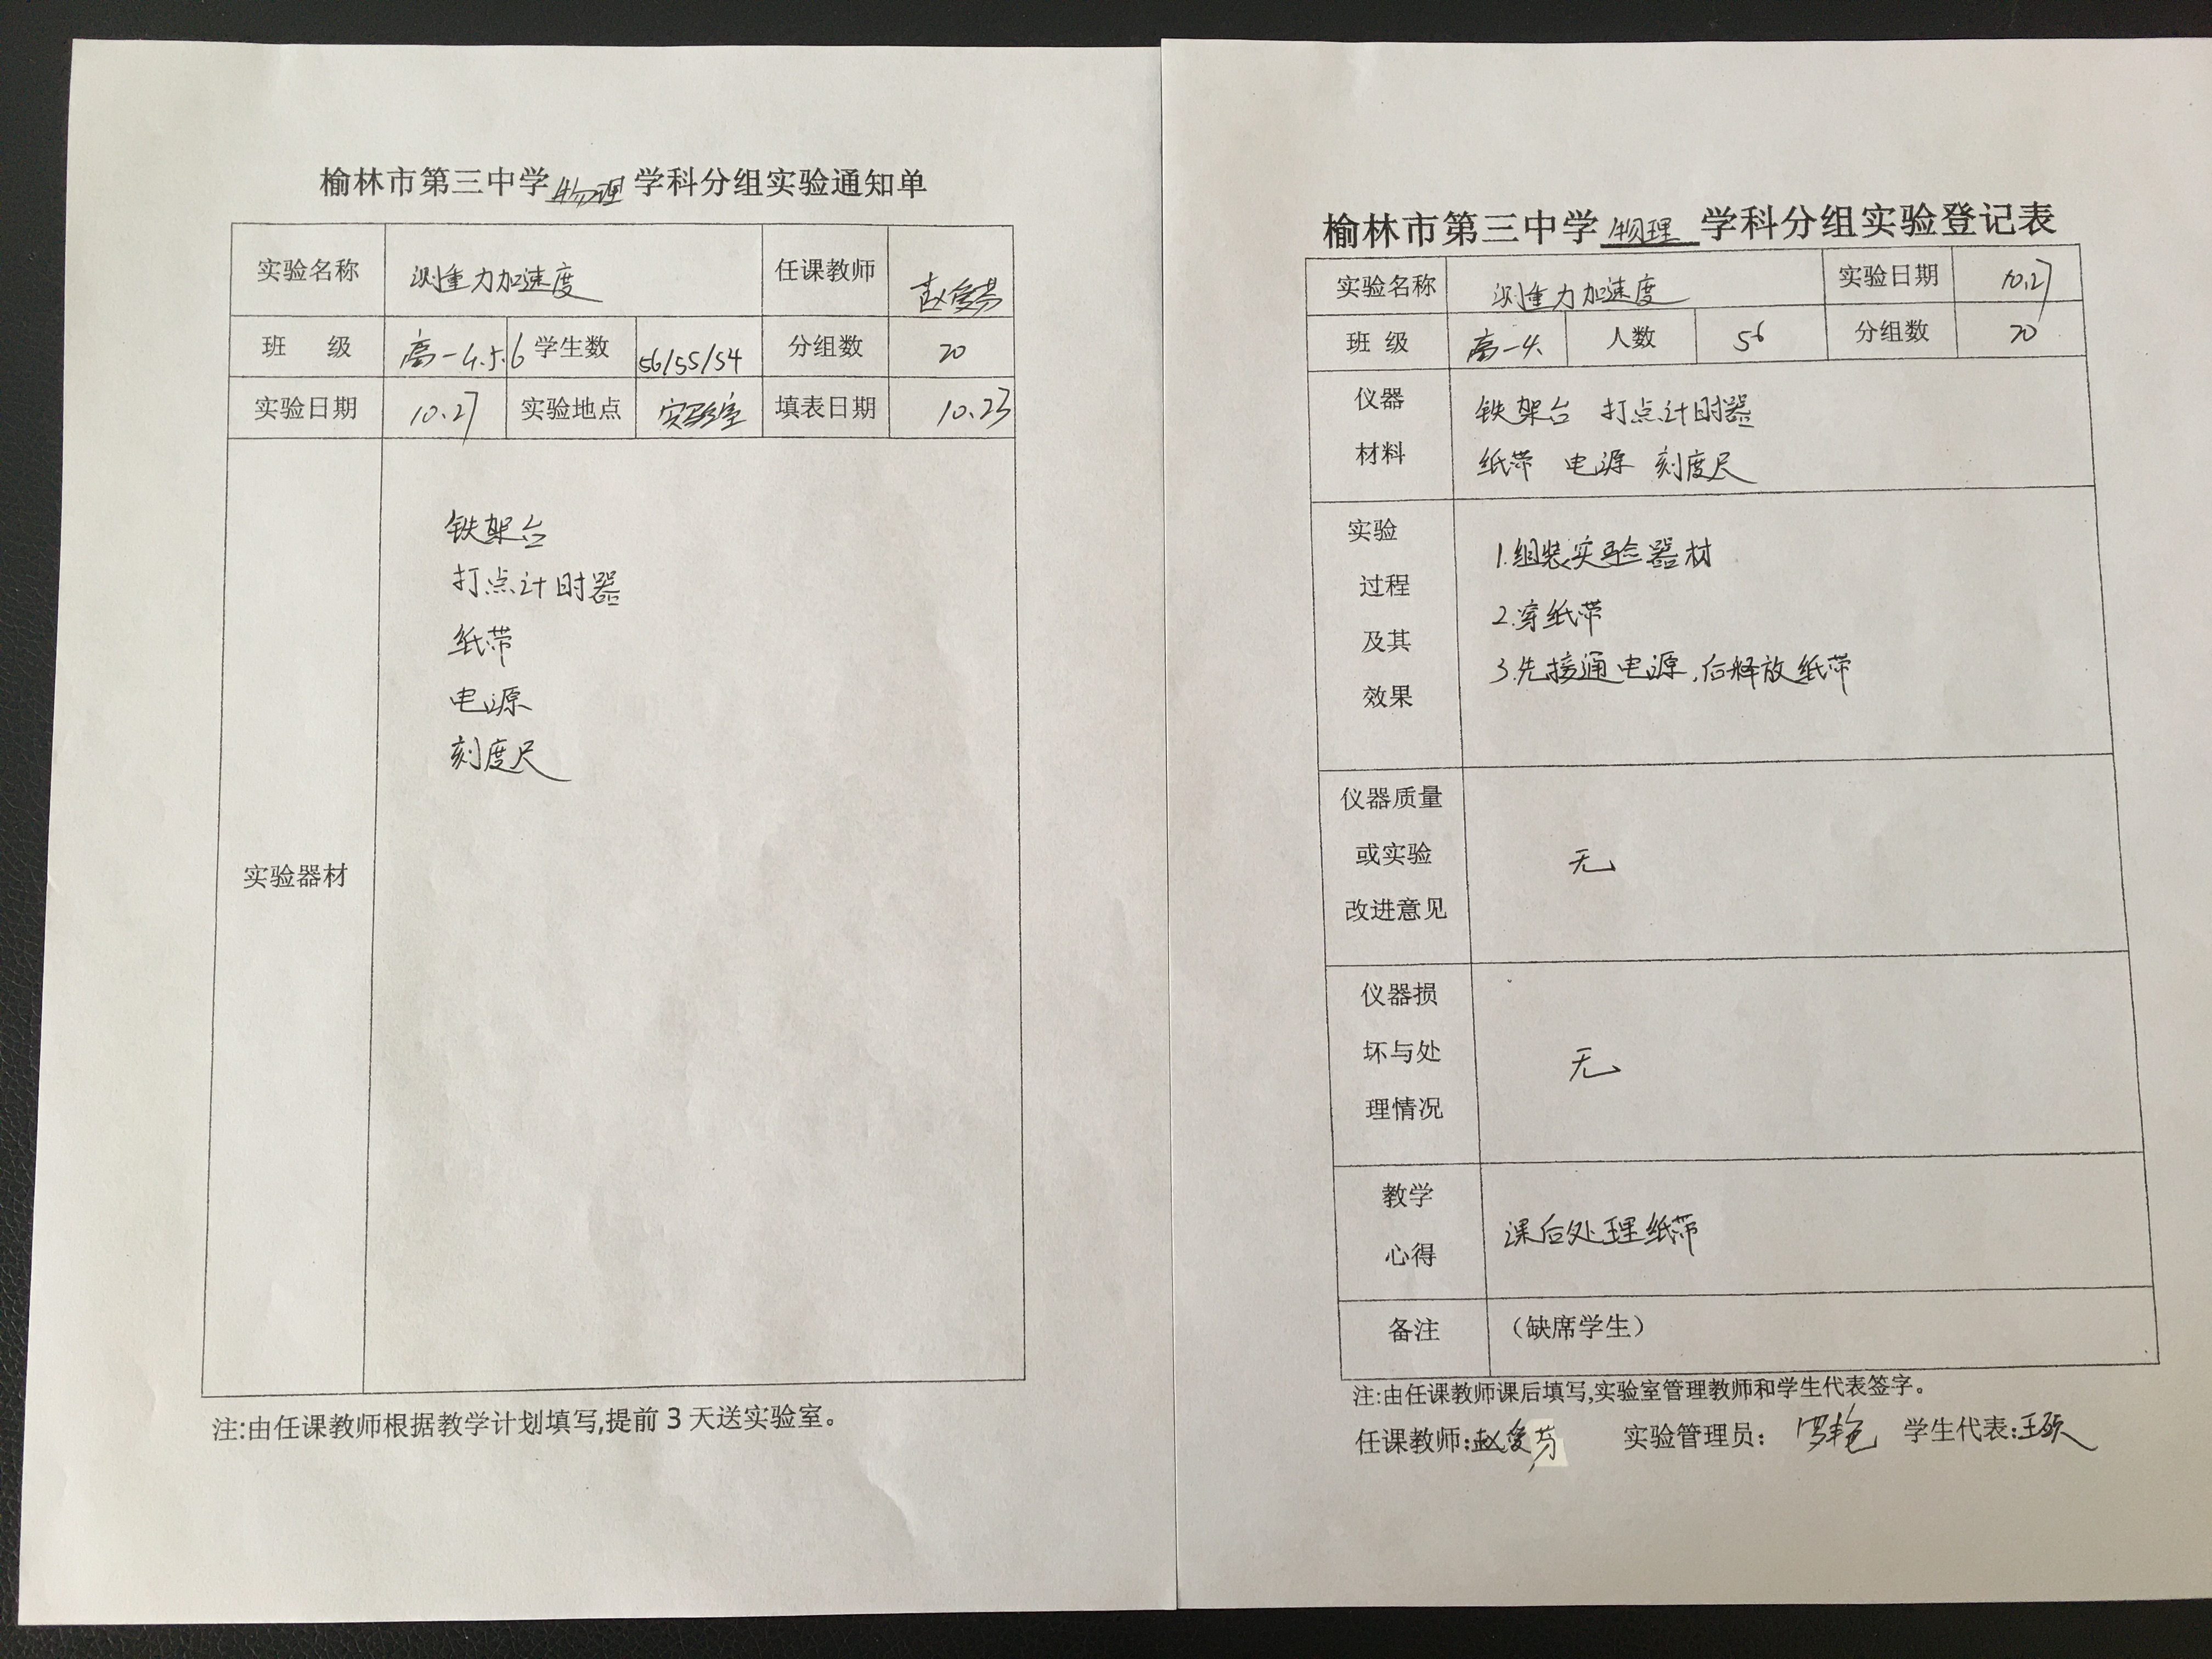 榆林市第三中学物理学科分组实验通知单
实验名称 测重力加速度 任课教师 赵爱芬
班 级 高一4.5.6 学生数 56/55/54 分组数 20
实验日期 10.27 实验地点 实验室 填表日期 10.23
铁架台
打点计时器
纸带
电源
刻度尺
实验器材
注:由任课教师根据教学计划填写,提前3天送实验室。
榆林市第三中学物理学科分组实验登记表
实验名称 测重力加速度 实验日期 10.27
班 级 高一4. 人数 56 分组数 20
仪器
材料
铁架台 打点计时器
纸带 电源 刻度尺
实验
过程
及其
效果
1.组装实验器材
2.穿纸带
3.先接通电源,后释放纸带
仪器质量
或实验
改进意见
无
仪器损
坏与处
理情况
无
教学
心得
课后处理纸带
备注 (缺席学生)
注:由任课教师课后填写,实验室管理教师和学生代表签字。
任课教师:赵爱芬 实验管理员: 罗艳 学生代表:王硕